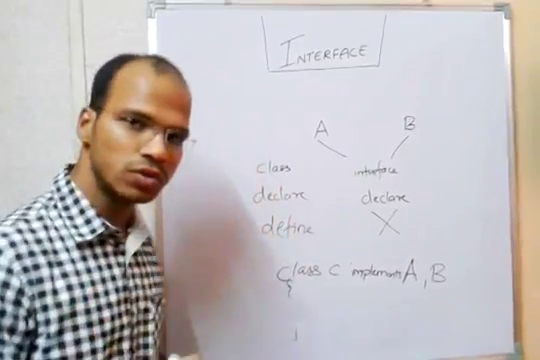 INTERFACE
A B
class interface
declare declare
define X
Class C implements A, B
{